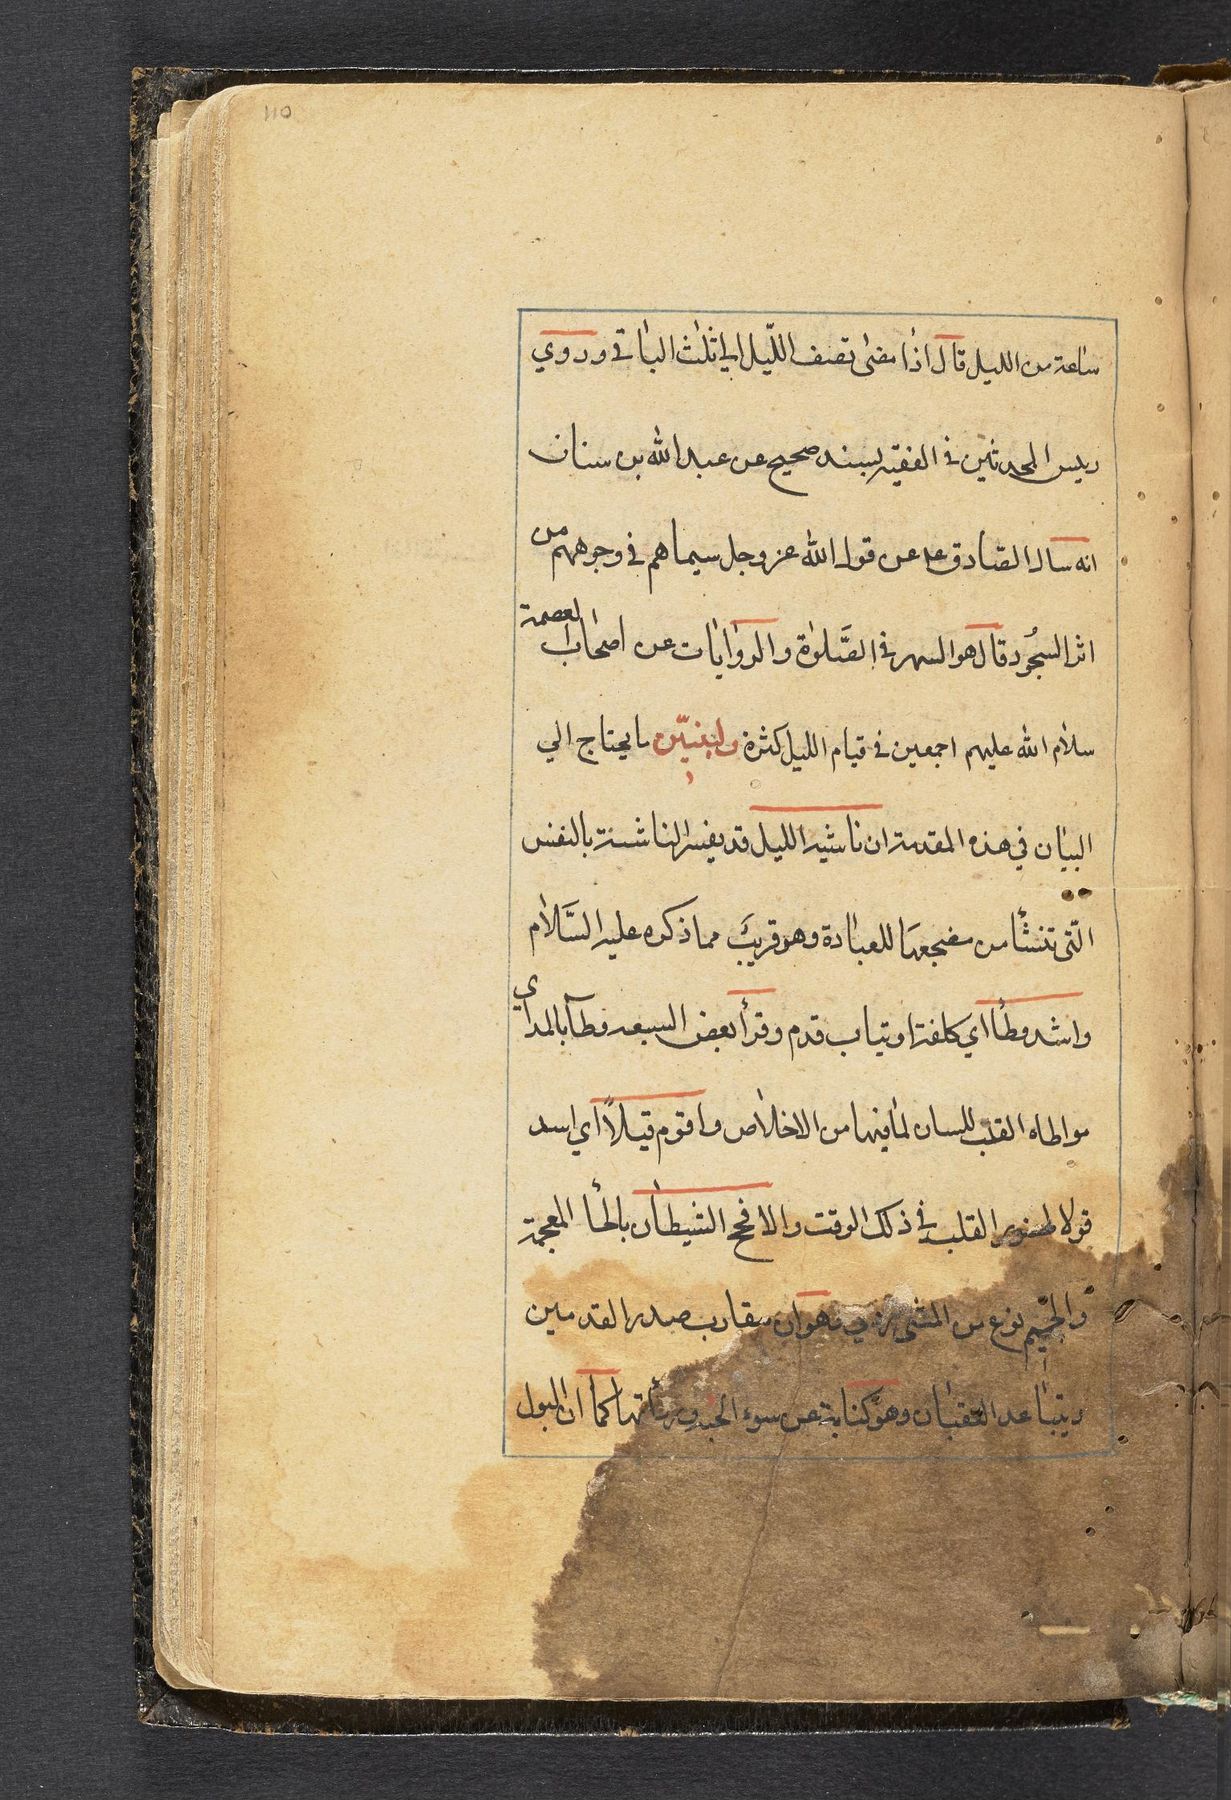 110
ساعة من الليل قال اذا مضى نصف الليل الى ثلث الباقي وروي
ريس المحدثين في الفقيه بسند صحيح عن عبد الله بن سنان
انه سال الصادق ع عن قول الله عز وجل سيماهم في وجوههم من
اثر السجُود قال هو السهر في الصَّلوٰة والروايات عن اصحاب العصمة
سلام الله عليهم اجمعين في قيام الليل كثيرة ولنبيّن ما يحتاج الي
البيان في هذه المقدمة ان ناشيه الليل قد يفسر الناشئة بالنفس
الّتى تنشأ من مضجعها للعبادة وهو قريب مما ذكره عليه السَّلام
واشد وطأ اي كلفة او ثبات قدم وقرأ بعض السبعه وطآ بالمد اي
مواطاه القلب للسان لما فيها من الاخلاص واقوم قيلاً اي اسد
قولا لحضور القلب في ذلك الوقت والافحج الشيطان بالحأ المعجمة
والجيم نوع من المشي وهو ان يتقارب صدر القدمين
ويتباعد العقبان وهو كناية عن سوء كما ان البول